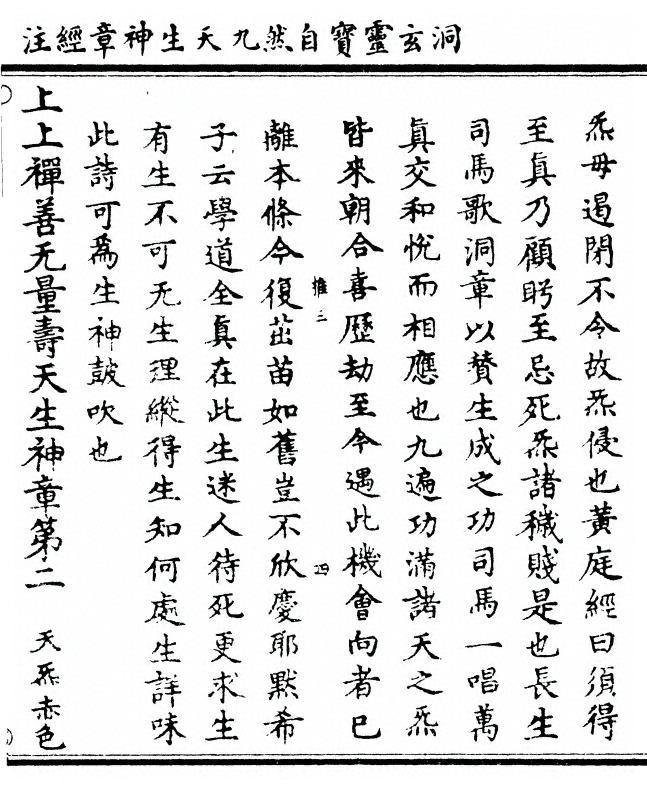 洞玄靈寶自然九天生神章經註
炁毋遏閉不令故炁侵也黃庭經曰須得
至眞乃顧眄至忌死炁諸穢賤是也長生
司馬歌洞章以贊生成之功司馬一唱萬
眞交和悅而相應也九遍功滿諸天之炁
皆來朝合喜歷劫至今遇此機會向者已
推三 四
離本條今復茁苗如舊豈不欣慶耶默希
子云學道全眞在此生迷人待死更求生
有生不可无生理縱得生知何處生詳味
此詩可爲生神鼓吹也
上上禪善无量壽天生神章第二 天炁赤色